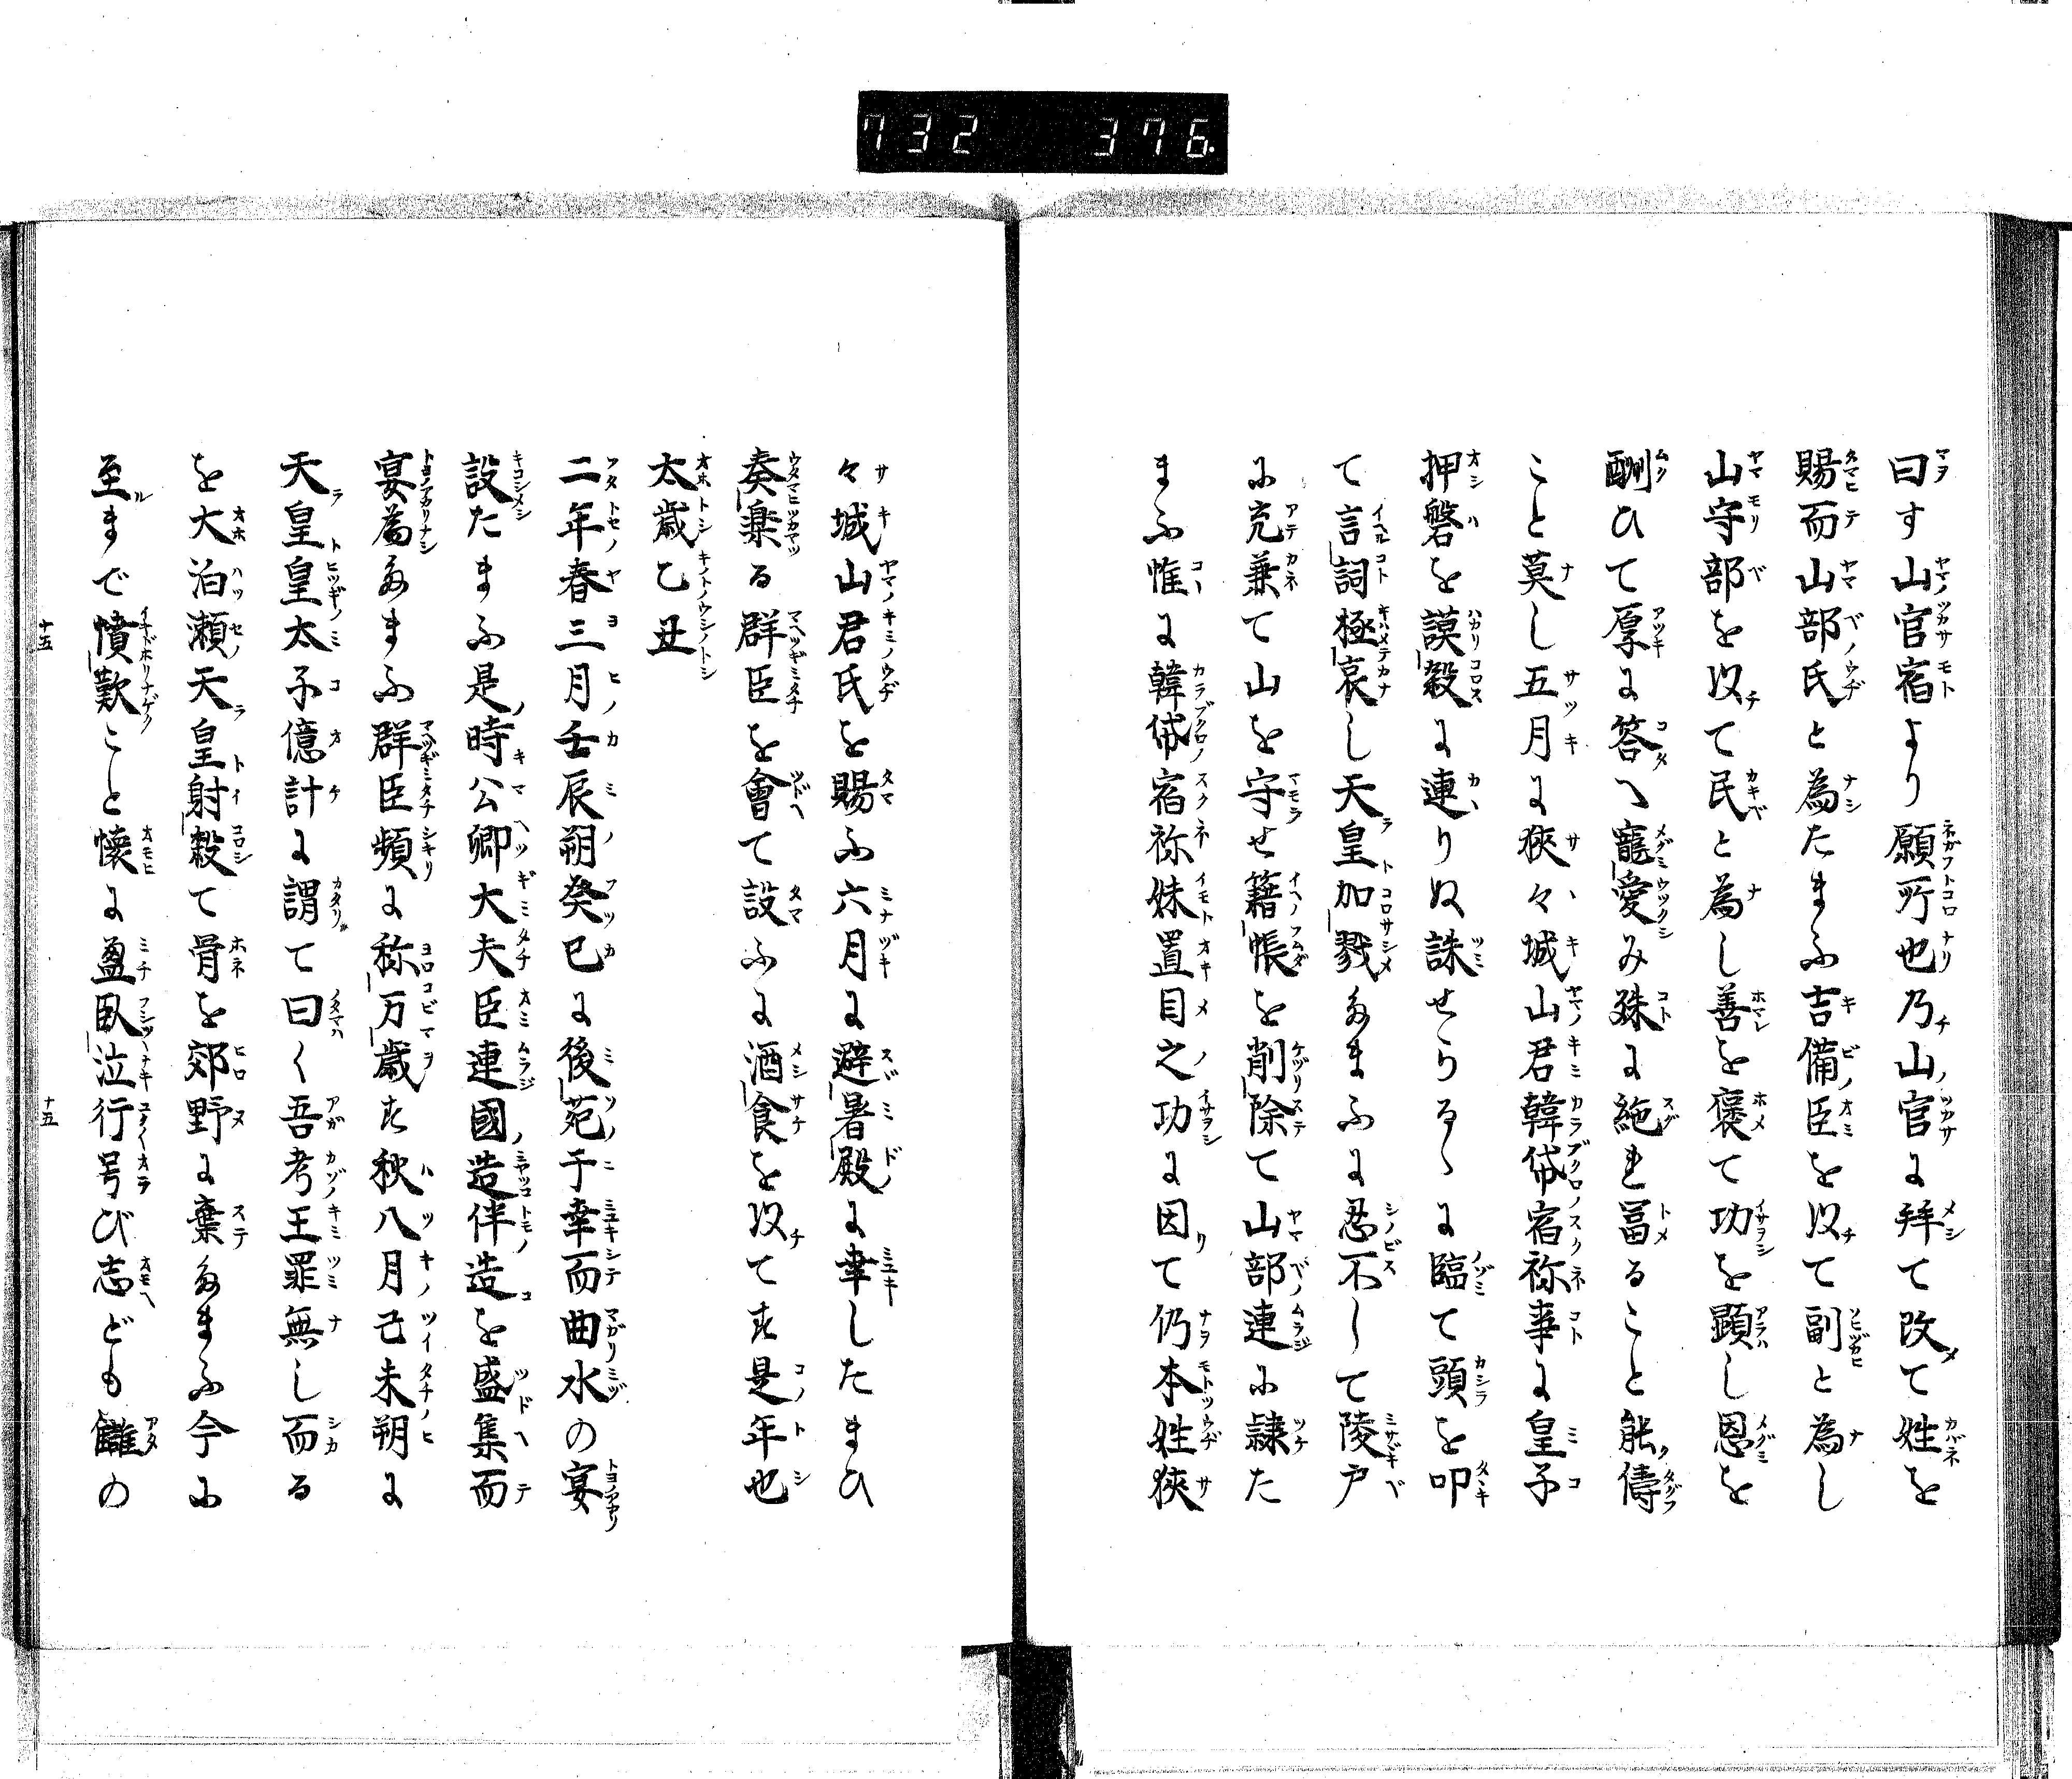 732 376.
曰す山官宿より願所也乃山官に拝て改て姓を
賜而山部氏と為たまふ吉備臣を以て副と為し
山守部を以て民と為し善を褒て功を顕し恩を
酬ひて厚に答へ寵愛み殊に絶れ冨ること能儔
こと莫し五月に狭々城山君韓帒宿祢事に皇子
押磐を謨殺に連りぬ誅せらるゝに臨て頭を叩
て言詞極哀し天皇加戮たまふに忍不して陵戸
に充兼て山を守せ籍帳を削除て山部連に隷た
まふ惟に韓帒宿祢妹置目之功に因て仍本姓狭
々城山君氏を賜ふ六月に避暑殿に幸したまひ
奏楽る群臣を會て設ふに酒食を以てす是年也
太歳乙丑
二年春三月壬辰朔癸巳に後苑于幸而曲水の宴
設たまふ是時公卿大夫臣連國造伴造を盛集而
宴為たまふ群臣頻に称万歳す秋八月己未朔に
天皇皇太子億計に謂て曰く吾考王罪無し而る
を大泊瀬天皇射殺て骨を郊野に棄たまふ今に
至まで憤歎こと懐に盈臥泣行号び志ども讎の
十五
十五